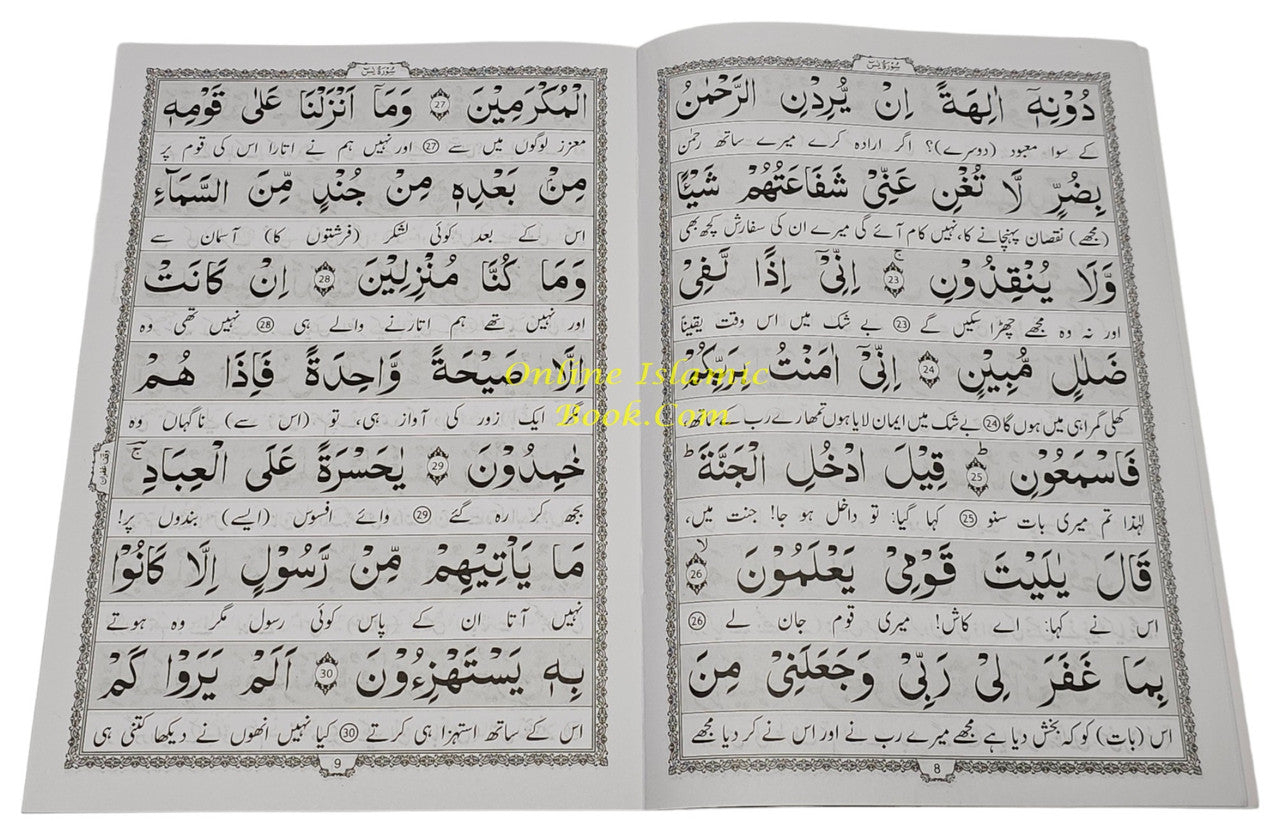 سُوْرَةُ يٰسٓ
دُوْنِهٖۤ اٰلِهَةً اِنْ يُّرِدْنِ الرَّحْمٰنُ
کے سوا معبود (دوسرے)؟ اگر ارادہ کرے میرے ساتھ رحمٰن
بِضُرٍّ لَّا تُغْنِ عَنِّیْ شَفَاعَتُهُمْ شَيْـًٔا
(مجھے) نقصان پہنچانے کا، نہیں کام آئے گی میرے ان کی سفارش کچھ بھی
وَّلَا يُنْقِذُوْنِ ۚ 23 اِنِّیْۤ اِذًا لَّفِیْ
اور نہ وہ مجھے چھڑا سکیں گے 23 بے شک میں اس وقت یقیناً
ضَلٰلٍ مُّبِيْنٍ 24 اِنِّیْۤ اٰمَنْتُ بِرَبِّكُمْ
کھلی گمراہی میں ہوں گا 24 بے شک میں ایمان لایا ہوں تمھارے رب کے ساتھ،
فَاسْمَعُوْنِ ؕ 25 قِيْلَ ادْخُلِ الْجَنَّةَ ؕ
لہٰذا تم میری بات سنو 25 کہا گیا: تو داخل ہو جا! جنت میں،
قَالَ يٰلَيْتَ قَوْمِیْ يَعْلَمُوْنَ ۙ 26
اس نے کہا: اے کاش! میری قوم جان لے 26
بِمَا غَفَرَ لِیْ رَبِّیْ وَجَعَلَنِیْ مِنَ
اس (بات) کو کہ بخش دیا ہے مجھے میرے رب نے اور اس نے کر دیا مجھے
8
سُوْرَةُ يٰسٓ
الْمُكْرَمِيْنَ 27 وَمَاۤ اَنْزَلْنَا عَلٰی قَوْمِهٖ
معزز لوگوں میں سے 27 اور نہیں ہم نے اتارا اس کی قوم پر
مِنْۢ بَعْدِهٖ مِنْ جُنْدٍ مِّنَ السَّمَآءِ
اس کے بعد کوئی لشکر (فرشتوں کا) آسمان سے
وَمَا كُنَّا مُنْزِلِيْنَ 28 اِنْ كَانَتْ
اور نہیں تھے ہم اتارنے والے ہی 28 نہیں تھی وہ
اِلَّا صَيْحَةً وَّاحِدَةً فَاِذَا هُمْ
مگر ایک زور کی آواز ہی، تو (اس سے) ناگہاں وہ
خٰمِدُوْنَ 29 يٰحَسْرَةً عَلَی الْعِبَادِ ۚ
بجھ کر رہ گئے 29 وائے افسوس (ایسے) بندوں پر!
مَا يَاْتِيْهِمْ مِّنْ رَّسُوْلٍ اِلَّا كَانُوْا
نہیں آتا ان کے پاس کوئی رسول مگر وہ ہوتے
بِهٖ يَسْتَهْزِءُوْنَ 30 اَلَمْ يَرَوْا كَمْ
اس کے ساتھ استہزا ہی کرتے 30 کیا نہیں انھوں نے دیکھا کتنی ہی
9
Online Islamic
Book.Com